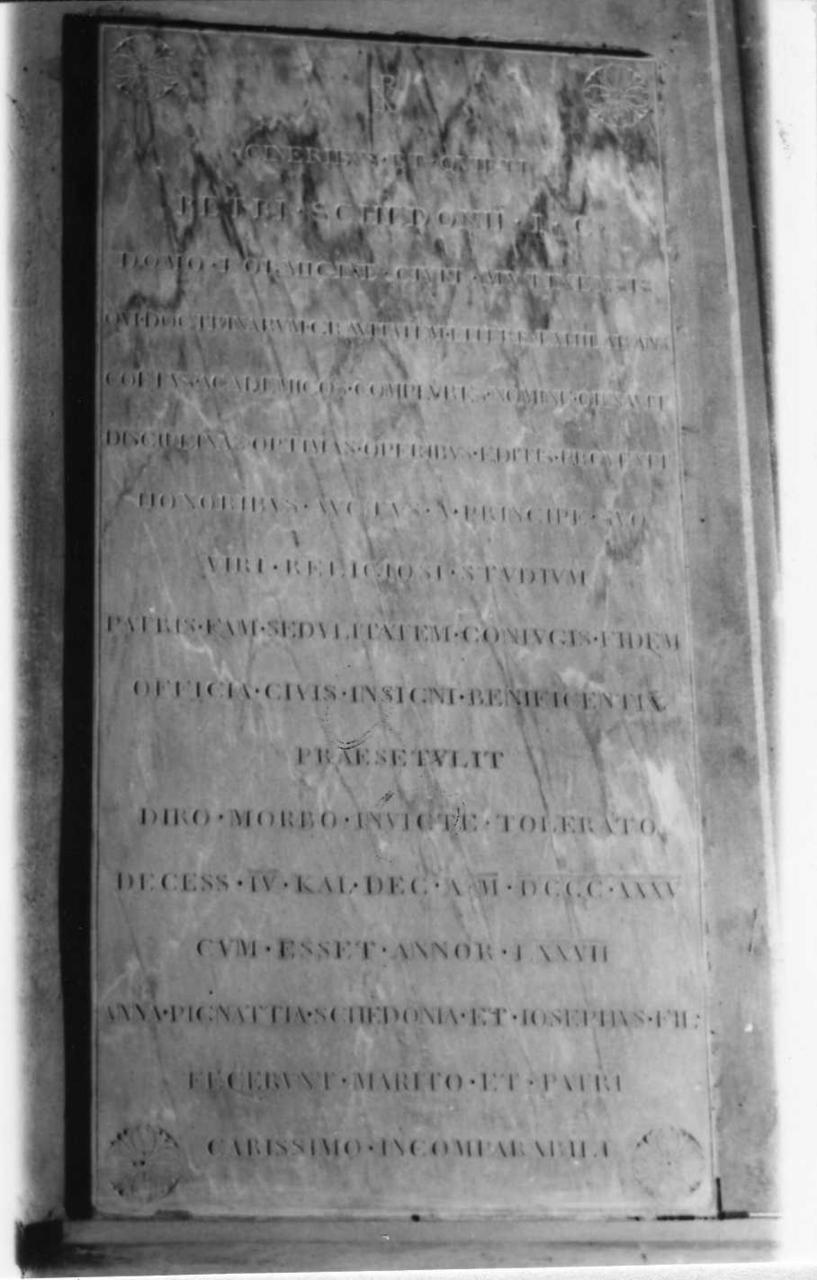 CINERIBVS · ET · QVIETI
PETRI · SCHEDONII · I · C
DOMO · FORMIGINE · CIVI · MVTINENSIS
QVI · DOCTRINARVM · GRAVITATEM · HILARANS
COETVS · ACADEMICOS · COMPLVRES · NOMINE · ORNAVIT
DISCIPLINAS · OPTIMAS · OPERIBVS · EDITIS · PROVEXIT
HONORIBVS · AVCTVS · A · PRINCIPE · SVO
VIRI · RELIGIOSI · STVDIVM
PATRIS · FAM · SEDVLITATEM · CONIVGIS · FIDEM
OFFICIA · CIVIS · INSIGNI · BENIFICENTIA
PRAESETVLIT
DIRO · MORBO · INVICTE · TOLERATO
DECESS · IV · KAL · DEC · A · M · DCCC · XXXV
CVM · ESSET · ANNOR · LXXVII
ANNA · PIGNATTIA · SCHEDONIA · ET · IOSEPHVS · FIL
FECERVNT · MARITO · ET · PATRI
CARISSIMO · INCOMPARABILI